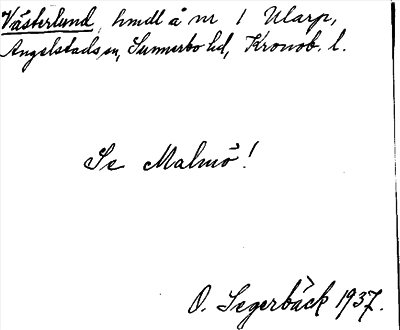 Västerlund, hmdl å nr 1 Ularp,
Angelstads sn, Sunnerbo hd, Kronob. l.
Se Malmö!
O. Segerbäck 1937.